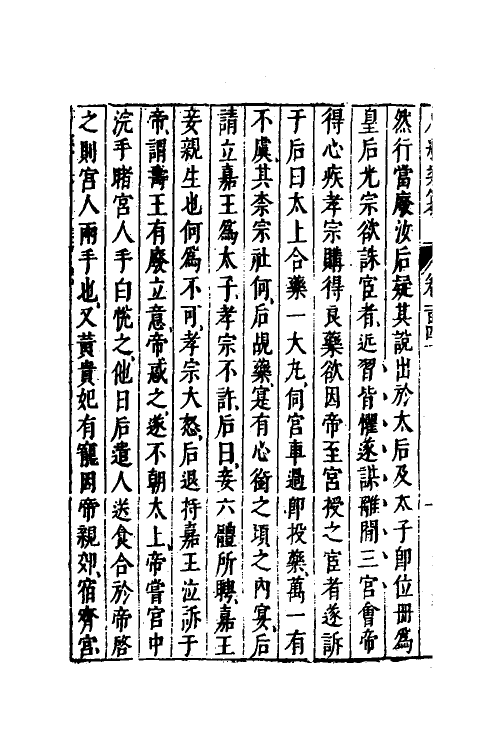 然行當廢汝后疑其説出於太后及太子卽位冊爲
皇后光宗欲誅宦者近習皆懼遂謀離間三宮會帝
得心疾孝宗購得良藥欲因帝至宮授之宦者遂訴
于后曰太上合藥一大丸伺宮車過卽投藥萬一有
不虞其柰宗社何后覘藥寔有心銜之頃之內宴后
請立嘉王爲太子孝宗不許后曰妾六體所聘嘉王
妾親生也何爲不可孝宗大怒后退持嘉王泣訴于
帝謂壽王有廢立意帝惑之遂不朝太上帝嘗宮中
浣手睹宮人手白恱之他日后遣人送食合於帝啓
之則宮人兩手也又黃貴妃有寵因帝親郊宿齊宮